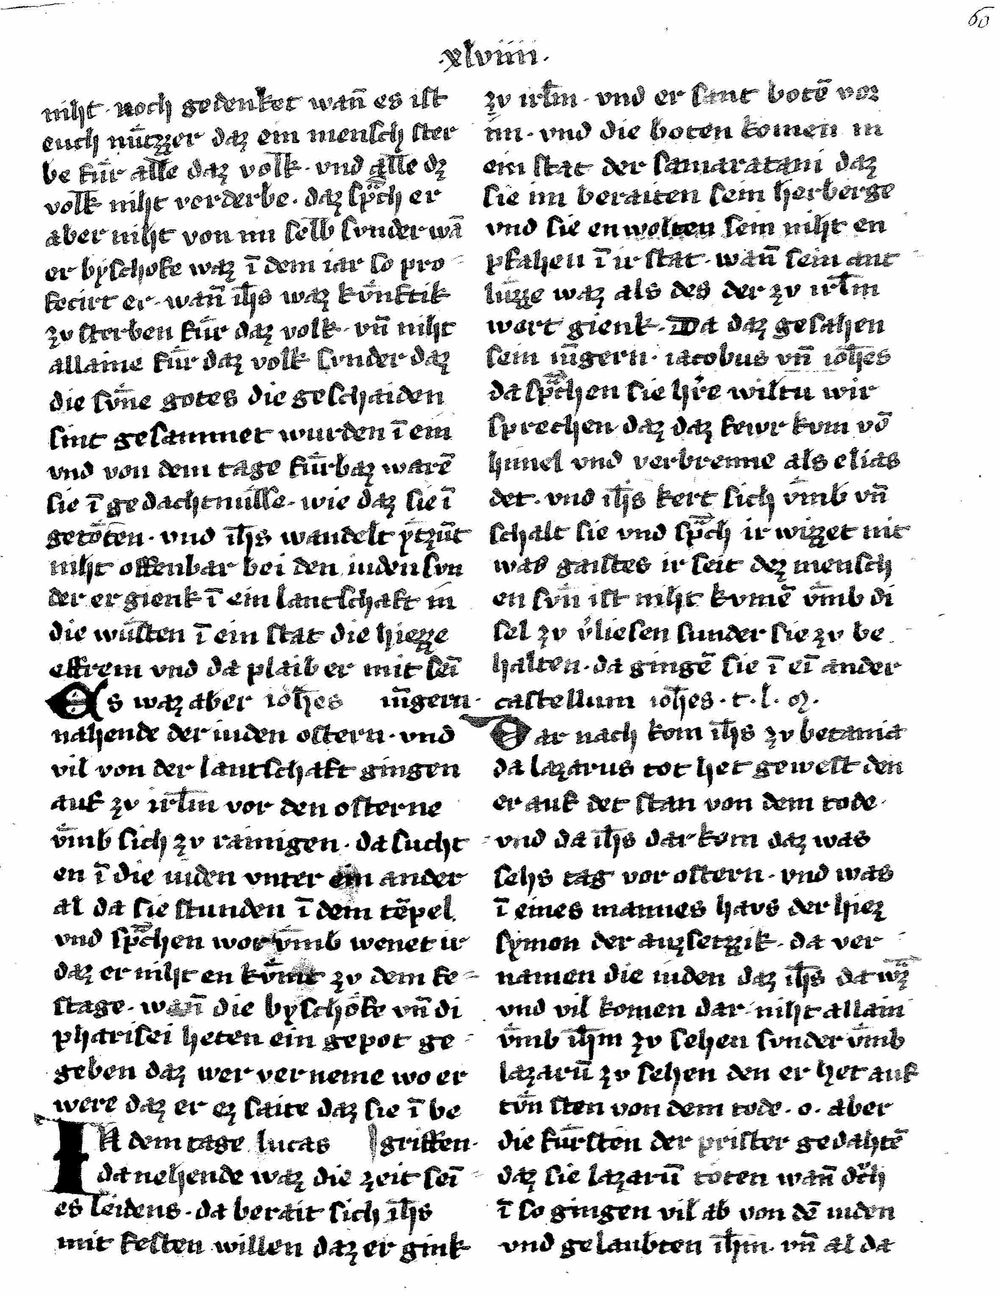 60
·xlviiii·
niht · noch gedenket wañ es ist
euch nützzer daz ein mensch ster
be für alle daz volk · vnd alle dz
volk niht verderbe · daz spͣch er
aber niht von im selb svnder wā
er byschofe waz ī dem iar so pro
fecirt er · wañ ih̄s waz kv́nftik
zv sterben für daz volk · vn̄ niht
allaine für daz volk svnder daz
die sv́ne gotes die geschaiden
sint gesammet wurden ī ein
vnd von dem tage fürbaz warē
sie ī gedachtnüsse · wie daz sie ī
getöten · vnd ih̄s wandelt ytzūt
niht offenbar bei den iuden svn
der er gienk ī ein lantschaft in
die wüsten ī ein stat die hiezze
effrem vnd da plaib er mit seī
Es waz aber ioh̄es iūgern ·
nahende der iuden ostern · vnd
vil von der lantschaft gingen
auf zv irl̄m vor den osterne
v̄mb sich zv rainigen · da sucht
en ī die iuden vnter ein ander
al da sie stunden ī dem tēpel
vnd spͣchen wor v̄mb wenet ir
daz er niht en kv́mt zv dem fe
stage · wañ die byschöfe vn̄ di
pharisei heten ein gepot ge
geben daz wer verneme wo er
were daz er ez saite daz sie ī be
In dem tage lucas griffen ·
da nehende waz die zeit seī
es leidens · da berait sich ih̄s
mit festen willen daz er gink
zv irl̄m · vnd er sant botē vor
im · vnd die boten komen in
ein stat der samaratani daz
sie im beraiten sein herberge
vnd sie en wolten sein niht en
pfahen ī ir stat · wañ sein ant
lüzze waz als des der zv irl̄m
wart gienk · Da daz gesahen
sein iūgern · iacobus vn̄ ioh̄es
da spͣchen sie hr̄e wiltu wir
sprechen daz daz fewr kvm vō
himel vnd verbrenne als elias
det · vnd ih̄s kert sich v̄mb vn̄
schalt sie vnd spͣch ir wizzet nit
was gaistes ir seit dez mensch
en svn ist niht kvmē v̄mb di
sel zv v̓liesen sunder sie zv be
halten · da gingē sie ī eī ander
castellum ioh̄es · t · l · oz ·
Dar nach kom ih̄s zv betania
da lazarus tot het gewest den
er auf det stan von dem tode ·
vnd da ih̄s dar kom daz was
sehs tag vor ostern · vnd was
ī eines mannes havs der hiez
symon der auzsetzzik · da ver
namen die iuden daz ih̄s da wz̄
vnd vil komen dar niht allain
v̄mb ih̄m zv sehen svnder v̄mb
lazarū zv sehen den er het auf
tv́n sten von dem tode · o · aber
die fürsten der prister gedahtē
daz sie lazarū töten wañ dv̓ch
ī so gingen vil ab von dē iuden
vnd gelaubten ih̄m · vn̄ al da